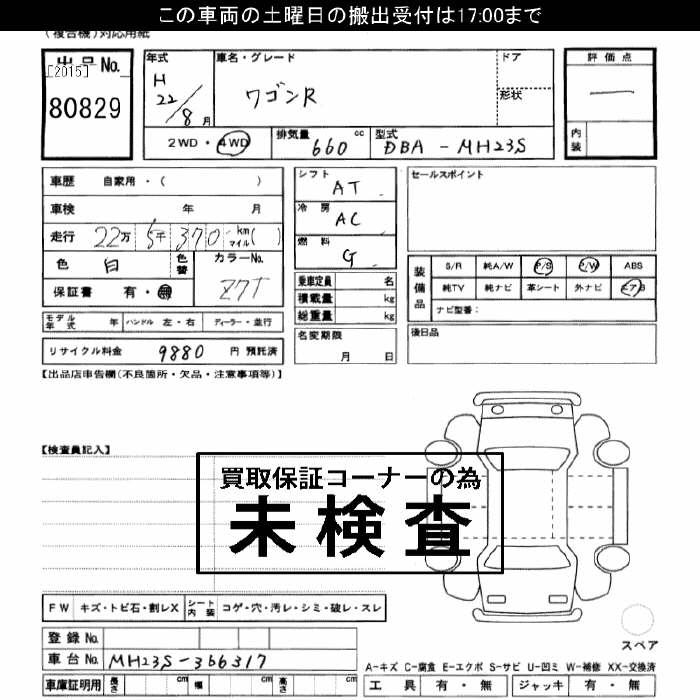 この車両の土曜日の搬出受付は17:00まで
(複合機)対応用紙
出品No.
[2015]
80829
年式
H
22/8月
車名・グレード
ワゴンR
ドア
形状
評価点
―
内装
2WD・4WD
排気量
660 cc
型式
DBA-MH23S
車歴 自家用・( )
車検 年 月
走行 22万5千370 km マイル( )
色 白 色替
カラーNo.
Z7T
保証書 有・無
モデル年式 年 ハンドル 左・右 ディーラー・並行
リサイクル料金 9880 円 預託済
シフト
AT
冷房
AC
燃料
G
乗車定員 名
積載量 kg
総重量 kg
名変期限
月 日
セールスポイント
装備品
S/R 純A/W P/S P/W ABS
純TV 純ナビ 革シート 外ナビ エアB
ナビ型番:
後日品
【出品店申告欄(不良箇所・欠品・注意事項等)】
【検査員記入】
買取保証コーナーの為
未検査
FW キズ・トビ石・割レX シート内装 コゲ・穴・汚レ・シミ・破レ・スレ
登録No.
車台No. MH23S-366317
車庫証明用 長さ cm 幅 cm 高さ cm
スペア
A-キズ C-腐食 E-エクボ S-サビ U-凹ミ W-補修 XX-交換済
工具 有・無 ジャッキ 有・無